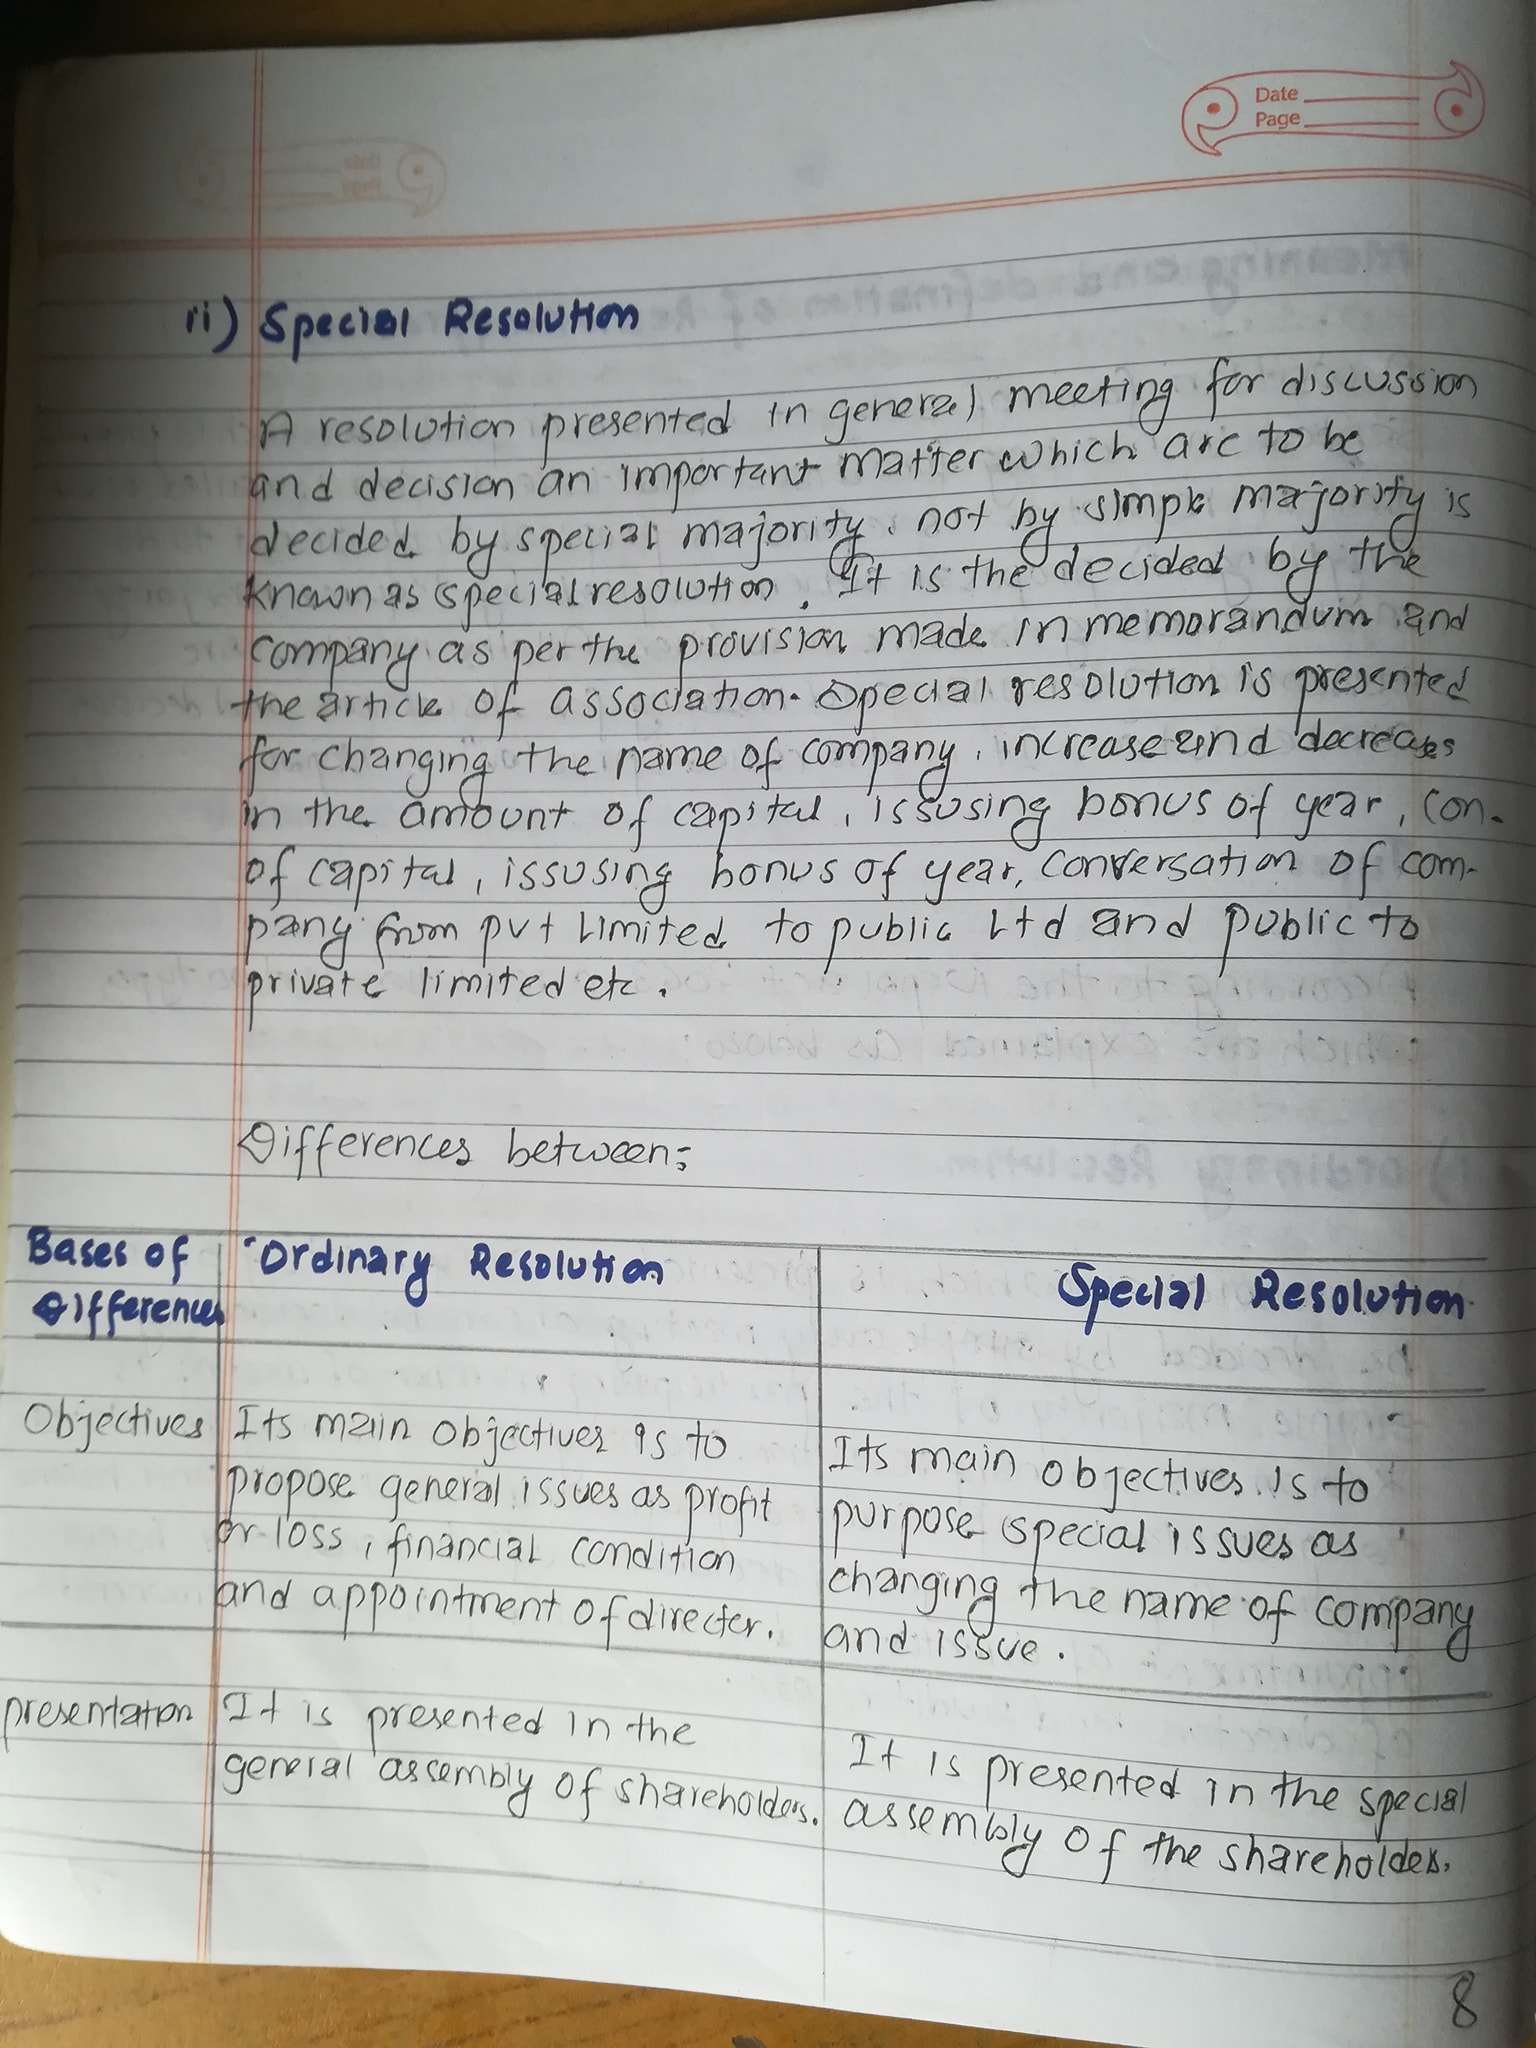 Date
Page
ii) Special Resolution
A resolution presented in general meeting for discussion
and decision an important matter which are to be
decided by special majority, not by simple majority is
known as special resolution. It is the decided by the
company as per the provision made in memorandum and
the article of association. Special resolution is presented
for changing the name of company, increase and decreases
in the amount of capital, issusing bonus of year, con-
of capital, issusing bonus of year, conversation of com-
pany from pvt limited to public Ltd and public to
private limited etc.
Differences between:
Bases of Ordinary Resolution Special Resolution
Differences
Objectives Its main objectives is to Its main objectives is to
propose general issues as profit purpose special issues as
or loss, financial condition changing the name of company
and appointment of director. and issue.
presentation It is presented in the It is presented in the special
general assembly of shareholders. assembly of the shareholders.
8